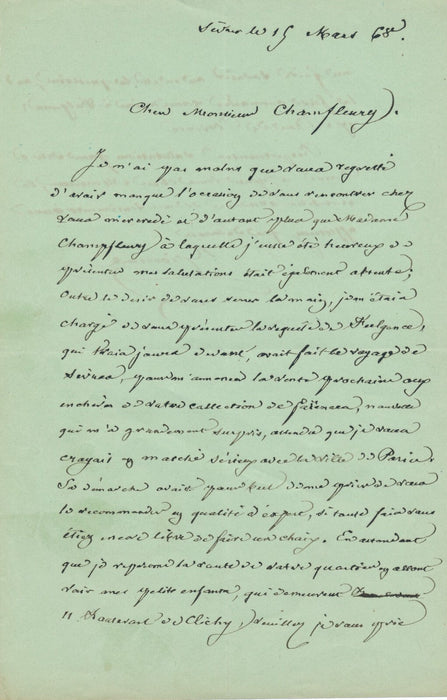 Sèvres le 15 Mars 68.
Cher Monsieur Champfleury.
Je n'ai pas moins que vous regretté
d'avoir manqué l'occasion de vous rencontrer chez
vous mercredi et d'autant plus que Madame
Champfleury à laquelle j'eusse été heureux de
présenter mes salutations était également absente;
Outre le désir de vous serrer la main, j'en étais
chargé de vous présenter la requête de
qui trois jours devant, avait fait le voyage de
Sèvres, pour m'annoncer la vente prochaine aux
enchères de votre collection de faïences, nouvelle
qui m'a grandement surpris, attendu que je vous
croyais en marché sérieux avec la ville de Paris.
Sa démarche avait pour but de me prier de vous
le recommander en qualité d'expert, si toute fois vous
étiez encore libre de faire un choix. En attendant
que je reprenne la route de votre quartier en allant
voir mes petits enfants, qui demeurent
11 Boulevart de Clichy, veuillez je vous prie